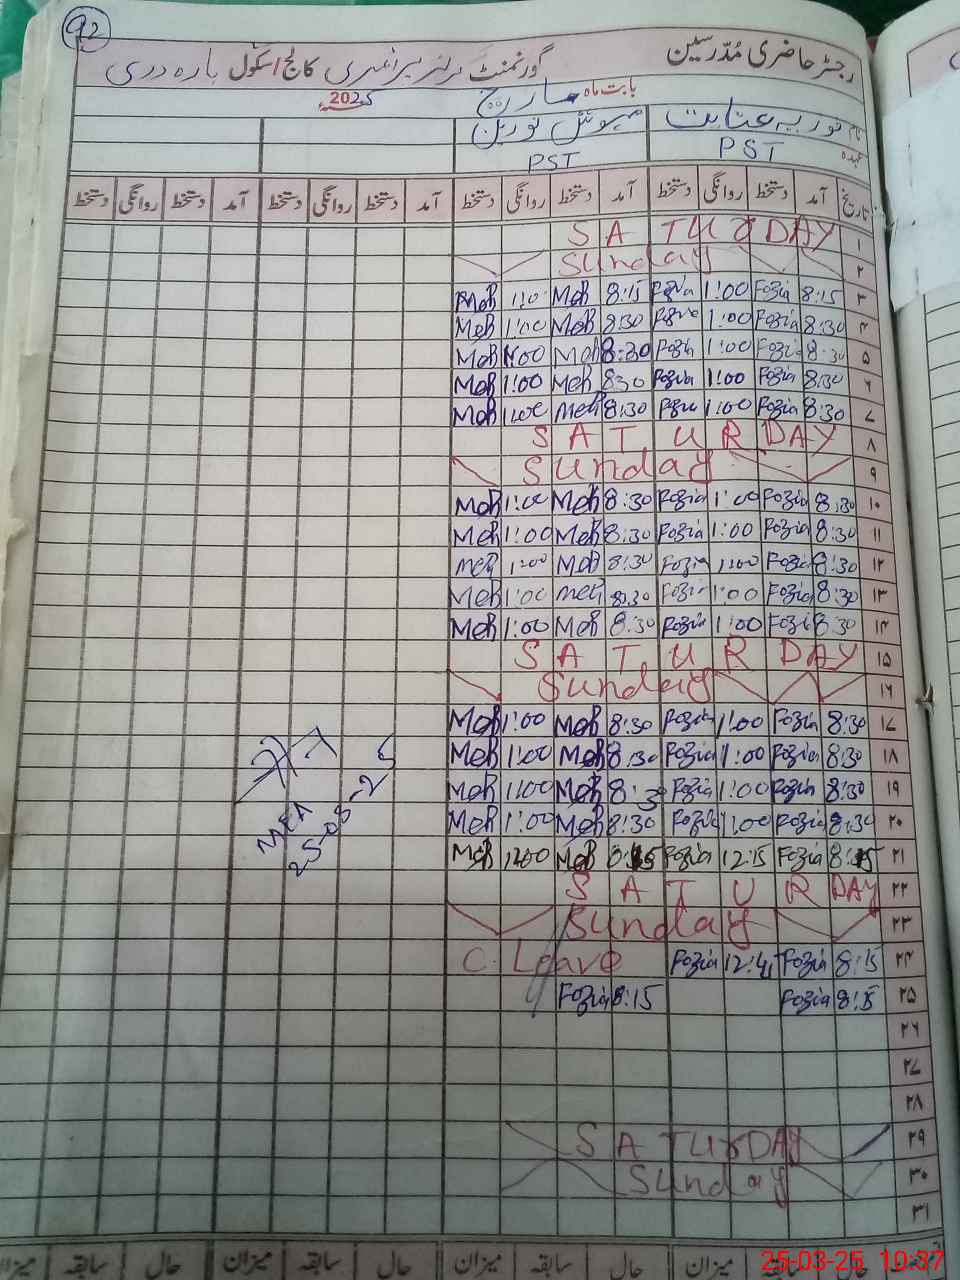 92
رجسٹر حاضری مُدّرسین گورنمنٹ گرلز پرائمری کالج/سکول بارہ دری
بابت ماہ مارچ 2025ء
نام فوزیہ عنایت مہوش نورین
عہدہ PST PST
تاریخ آمد دستخط روانگی دستخط آمد دستخط روانگی دستخط آمد دستخط روانگی دستخط آمد دستخط روانگی دستخط
۱ SATURDAY
۲ Sunday
۳ 8:15 Fozia 1:00 Fozia 8:15 Meh 1:0 Meh
۴ 8:30 Fozia 1:00 Fozia 8:30 Meh 1:00 Meh
۵ 8:30 Fozia 1:00 Fozia 8:30 Meh 1:00 Meh
۶ 8:30 Fozia 1:00 Fozia 8:30 Meh 1:00 Meh
۷ 8:30 Fozia 1:00 Fozia 8:30 Meh 1:00 Meh
۸ SATURDAY
۹ Sunday
۱۰ 8:30 Fozia 1:00 Fozia 8:30 Meh 1:00 Meh
۱۱ 8:30 Fozia 1:00 Fozia 8:30 Meh 1:00 Meh
۱۲ 8:30 Fozia 1:00 Fozia 8:30 Meh 1:00 Meh
۱۳ 8:30 Fozia 1:00 Fozia 8:30 Meh 1:00 Meh
۱۴ 8:30 Fozia 1:00 Fozia 8:30 Meh 1:00 Meh
۱۵ SATURDAY
۱۶ Sunday
۱۷ 8:30 Fozia 1:00 Fozia 8:30 Meh 1:00 Meh
۱۸ 8:30 Fozia 1:00 Fozia 8:30 Meh 1:00 Meh
۱۹ 8:30 Fozia 1:00 Fozia 8:30 Meh 1:00 Meh
۲۰ 8:30 Fozia 1:00 Fozia 8:30 Meh 1:00 Meh
۲۱ 8:15 Fozia 12:15 Fozia Meh Meh
MEA
25-03-25
۲۲ SATURDAY
۲۳ Sunday
۲۴ 8:15 Fozia Fozia C. Leave
۲۵ 8:15 Fozia 8:15 Fozia
۲۶
۲۷
۲۸
۲۹ SATURDAY
۳۰ Sunday
۳۱
حال سابقہ میزان حال سابقہ میزان حال سابقہ میزان حال سابقہ میزان
25-03-25 10:37